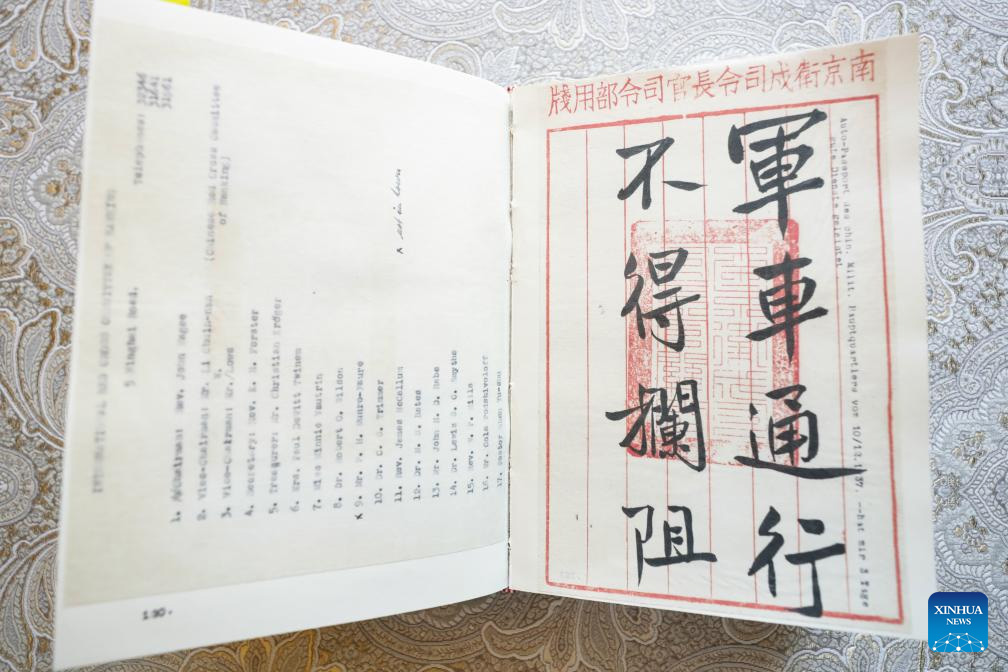 INTERNATIONAL RED CROSS COMMITTEE OF NANKING
5 Ninghai Road.
Telephones: 32346
31641
31961
1. Chairman: Rev. John Magee
2. Vice-Chairman: Mr. Li Chuin-nan (Chinese Red Cross Committee
of Nanking)
3. Vice-Chairman: Mr. W. Lowe
4. Secretary: Rev. E. H. Forster
5. Treasurer: Mr. Christian Kröger
6. Mrs. Paul DeWitt Twinem
7. Miss Minnie Vautrin
8. Dr. Robert O. Wilson
x 9. Mr. P. H. Munro-Faure
10. Dr. C. S. Trimmer
11. Rev. James McCallum
12. Dr. M. S. Bates
13. Mr. John H. D. Rabe
14. Dr. Lewis S. C. Smythe
15. Rev. W. P. Mills
16. Mr. Cola Podshivoloff
17. Pastor Shen Yu-shu
x not in town
130.
南京衛戍司令長官司令部用牋
軍車通行
不得攔阻
Auto-Passport des chin. Milit. Hauptquartiers vom 10/12.1937. --hat mir 3 Tage
gute Dienste geleistet
XINHUA
NEWS